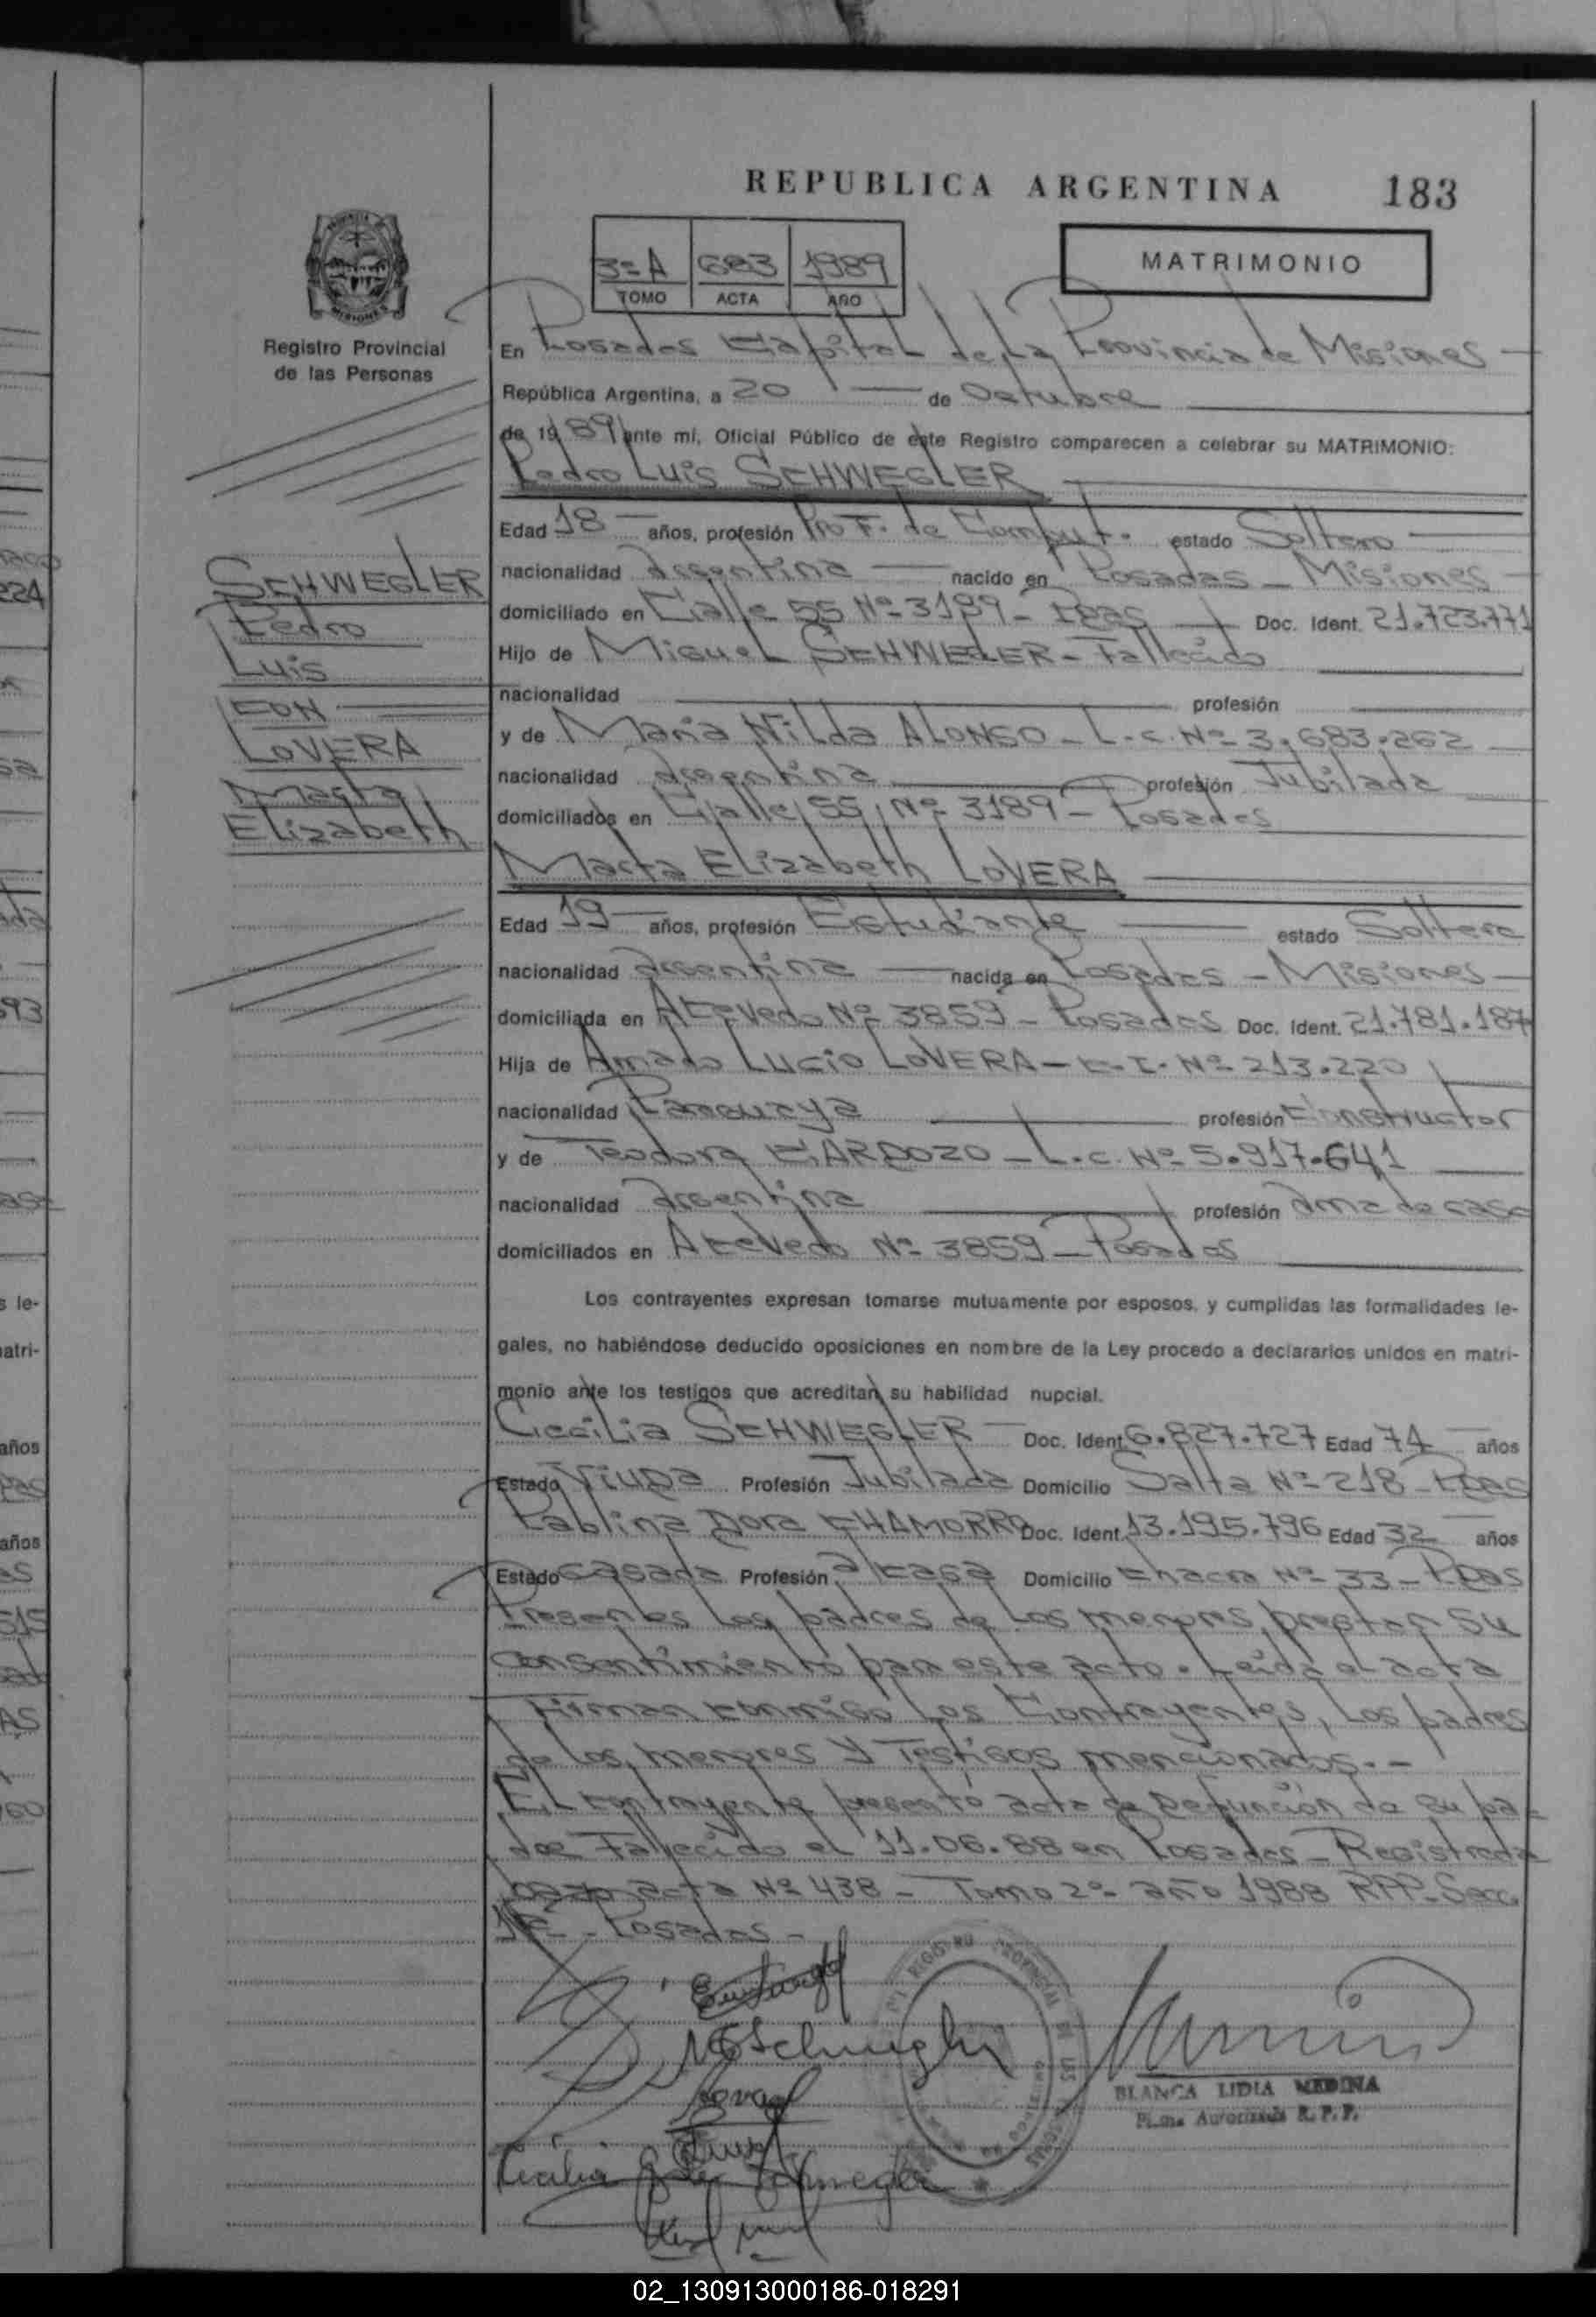 REPUBLICA ARGENTINA 183
3º A 683 1989
TOMO ACTA AÑO
MATRIMONIO
Registro Provincial
de las Personas
SCHWEGLER
Pedro
Luis
CON
LOVERA
Marta
Elizabeth
En Posadas Capital de la Provincia de Misiones
República Argentina, a 20 de Octubre
de 1989 ante mí, Oficial Público de este Registro comparecen a celebrar su MATRIMONIO:
Pedro Luis SCHWEGLER
Edad 18 años, profesión Prof. de Comput. estado Soltero
nacionalidad argentina nacido en Posadas - Misiones
domiciliado en Calle 55 Nº 3189 - Pdas Doc. Ident. 21.723.771
Hijo de Miguel SCHWEGLER - Fallecido
nacionalidad profesión
y de María Nilda ALONSO - L.C. Nº 3.683.262
nacionalidad argentina profesión Jubilada
domiciliados en Calle 55 Nº 3189 - Posadas
Marta Elizabeth LOVERA
Edad 19 años, profesión Estudiante estado Soltera
nacionalidad argentina nacida en Posadas - Misiones
domiciliada en Acevedo Nº 3859 - Posadas Doc. Ident. 21.781.187
Hija de Amado Lucio LOVERA - C.I. Nº 213.220
nacionalidad Paraguaya profesión Constructor
y de Teodora CARDOZO - L.C. Nº 5.917.641
nacionalidad argentina profesión ama de casa
domiciliados en Acevedo Nº 3859 - Posadas
Los contrayentes expresan tomarse mutuamente por esposos, y cumplidas las formalidades le-
gales, no habiéndose deducido oposiciones en nombre de la Ley procedo a declararlos unidos en matri-
monio ante los testigos que acreditan su habilidad nupcial.
Cecilia SCHWEGLER Doc. Ident. 6.827.727 Edad 74 años
Estado Viuda Profesión Jubilada Domicilio Salta Nº 218 - Pdas
Pablina Dora CHAMORRO Doc. Ident. 13.195.796 Edad 32 años
Estado casada Profesión a casa Domicilio Chacra Nº 33 - Pdas
Presentes los padres de los menores, prestan su
consentimiento para este acto. Leída el acta
Firman conmigo los Contrayentes, los padres
de los menores y Testigos mencionados.-
El contrayente presentó acta de Defunción de su pa-
dre Fallecido el 11.06.88 en Posadas - Registrada
bajo acta Nº 438 - Tomo 2º año 1988 RPP. Secc.
1ª - Posadas -
BLANCA LIDIA MEDINA
Firma Autorizada R. P. P.
02_130913000186-018291